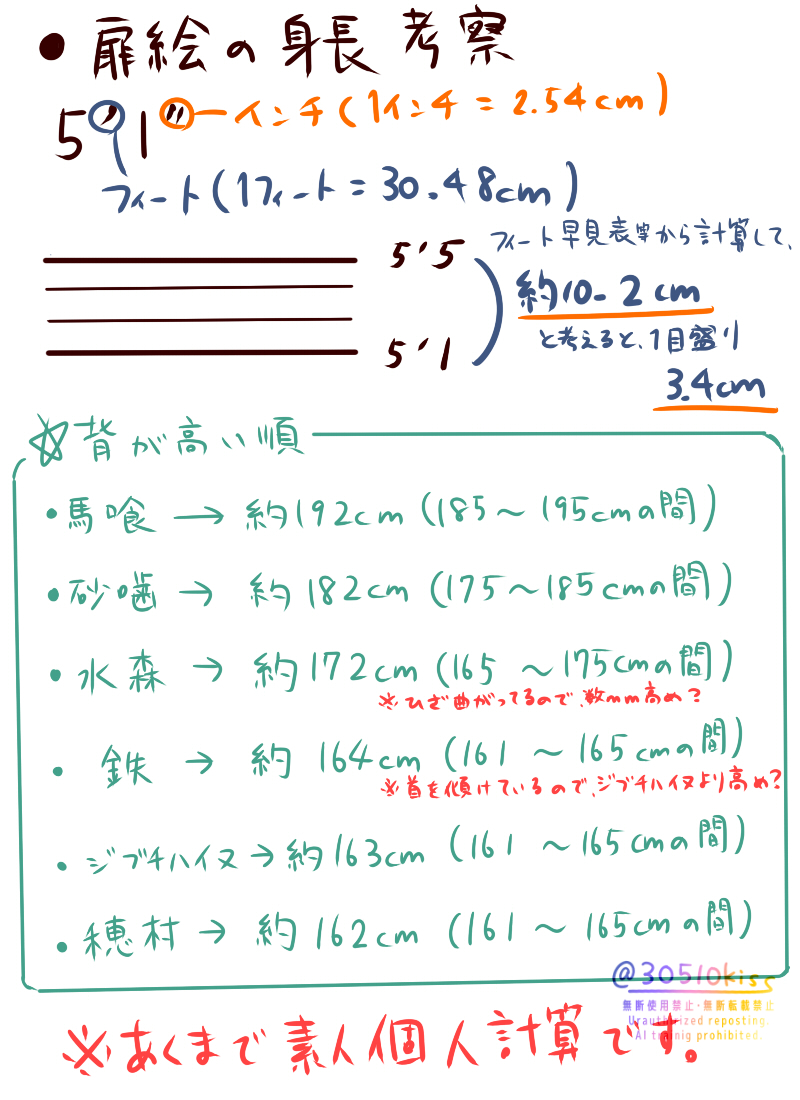 ●扉絵の身長考察
5'1" インチ(1インチ=2.54cm)
フィート(1フィート=30.48cm)
5'5
5'1
フィート早見表等から計算して、
約10.2cm
と考えると、1目盛り
3.4cm
☆背が高い順
・馬喰→約192cm(185〜195cmの間)
・砂噛→約182cm(175〜185cmの間)
・水森→約172cm(165〜175cmの間)
※ひざ曲がってるので、数mm高め?
・鉄→約164cm(161〜165cmの間)
※首を傾けているので、ジブチハイヌより高め?
・ジブチハイヌ→約163cm(161〜165cmの間)
・穂村→約162cm(161〜165cmの間)
@30510kiss
無断使用禁止・無断転載禁止
Unauthorized reposting.
AI trainig prohibited.
※あくまで素人個人計算です。